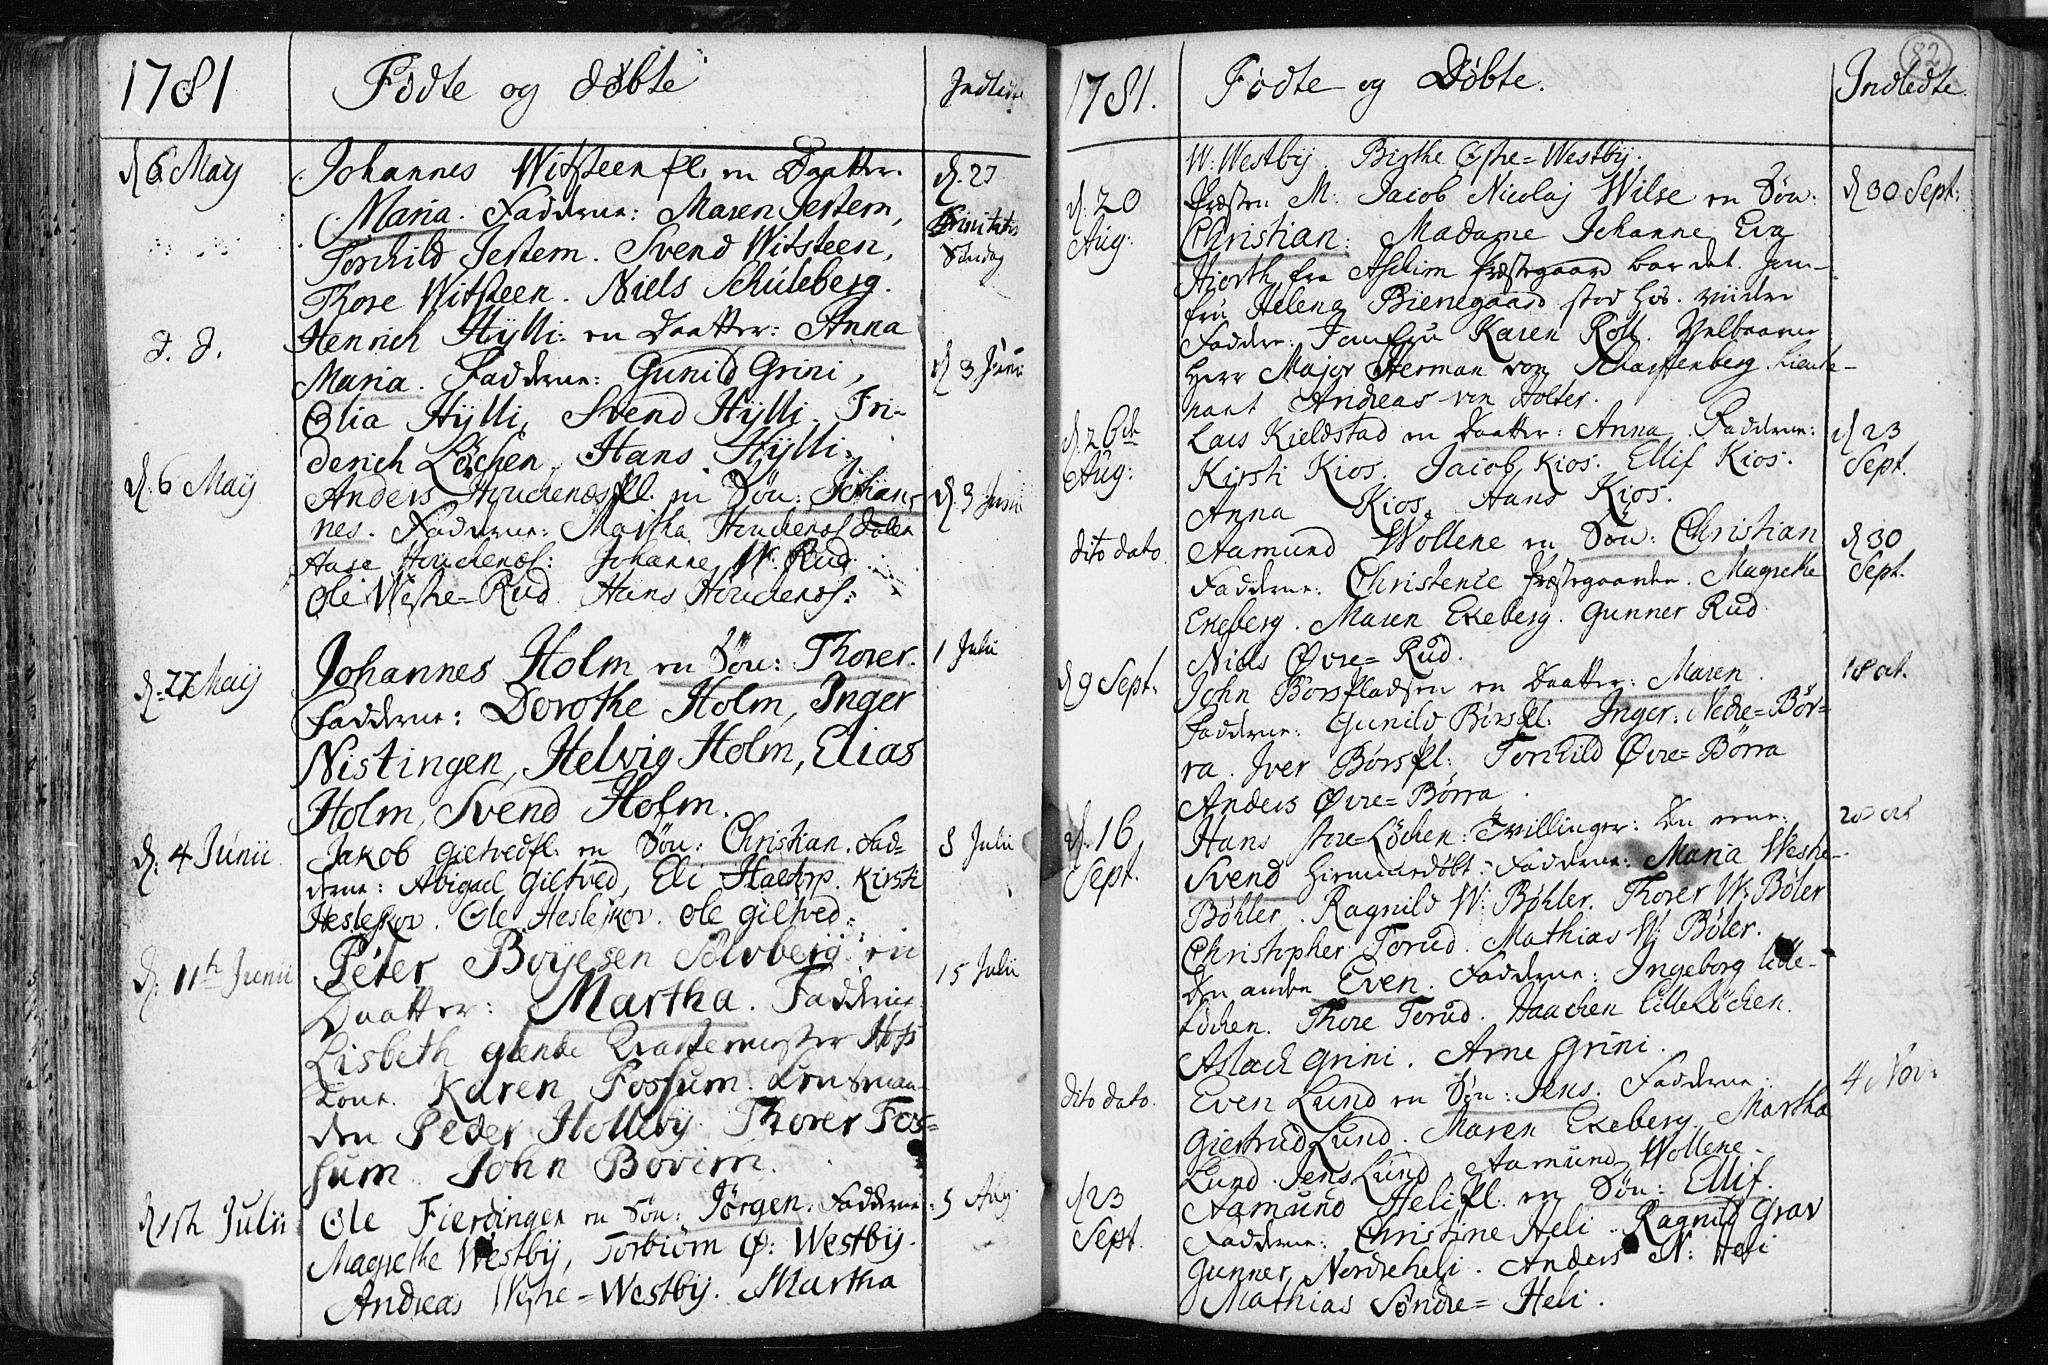 1781 Fødte og døbte Indledte
d. 6 Maij Johannes Witsteen pl. en Daatter. d. 27
Maria. Fadderne: Maren Jestem, Trinitatis
Torchild Jestem. Svend Witsteen, Søndag
Thore Witsteen. Niels Schuleberg.
d. d. Henrich Hÿlli: en Daatter: Anna
Maria. Fadderne: Gunild Grini, d 3 Junii
Olia Hÿlli, Svend Hÿlli. Fri-
derich Løchen, Hans Hÿlli.
d. 6 Maij Anders Houchenæspl. en Søn: Johan- d. 3 Junii
nes. Fadderne: Martha Houchenæs
Aase Houchenæs: Johanne W: Rud
Ole Westre=Rud. Hans Houchenæs:
d. 27 Maij Johannes Holm en Søn: Thorer. 1 Julii
Fadderne: Dorothe Holm, Inger
Nistingen, Helvig Holm, Elias
Holm, Svend Holm.
d. 4 Junii Jakob Gieltvedpl. en Søn: Christian. Fad= 8 Julii
derne: Abigael Gieltved, Eli Haetorp. Kirsti
Heslejkov. Ole Heslejkov. Ole Gieltved:
d. 11th Junii Peter Boyesen Solvberg: en 15 Julii
Daatter: Martha. Fadderne
Lisbeth Qvartermester Hofs
Kone. Karen Fossum. Lensman-
den Peder Holleby. Thorer Fos=
sum. John Bovim.
Julii Ole Fierdingen en Søn: Jørgen. Fadderne: 5 Aug.
Magrethe Westbij, Torbiørn Ø: Westbij.
Andreas Westre=Westbij. Martha
82
1781. Fødte og Døbte. Indledte.
W: Westbij. Birthe Østre=Westbij.
d. 20 Præsten M: Jacob Nicolaj Wilse en Søn: d 30 Sept:
Aug: Christian: Madame Johanne Eva
Hiorth fra Aschim Præstegaard bar det. Jom-
fru Helena Bienegaard stod hos. Viidere
Faddere: Jomfru Karen Roll. Velbaarne
Herr Major Herman von Scharffenberg. Lieute-
nant Andreas von Holter.
d. 26de Lars Kieldstad en Daatter: Anna. Fadderne: d 23
Aug: Kirsti Kios. Jacob Kios. Ellif Kios. Sept.
Anna Kios. Hans Kios.
dito dato. Aamund Wollene en Søn: Christian d 30
Fadderne: Christence Præstegaarden. Magrethe Sept.
Ekeberg. Maren Ekeberg. Gunner Rud
Niels Øvre=Rud.
d 9 Sept. John Børspladsen en Daatter: Maren. 18 oct.
Fadderne: Gunild Børspl. Inger: Nedre=Bør=
ra. Iver Børspl: Torchild Øvre=Børra
Anders Øvre=Børra.
d. 16 Hans Store=Løchen: Tvillinger: Den eene: 20 oct
Sept. Svend hiemmedøbt: Fadderne: Maria Westre-
Bøhler. Ragnild W: Bøhler. Thorer W: Bøler
Christopher Torud. Mathias W: Bøler.
Den anden Even. Fadderne: Ingeborg Lille-
Løchen. Thore Torud. Haachen Lille Løchen.
Aslach Grini. Arne Grini.
dito dato. Even Lund en Søn: Jens. Fadderne: 4 Nov:
Giertrud Lund. Maren Ekeberg. Martha
Lund. Jens Lund. Aamund Wollene.
d 23 Aamund Helipl. en Søn: Ellif.
Sept. Fadderne: Christine Heli. Ragnild Grav
Gunner Nordreheli. Anders N: Heli
Mathias Søndre=Heli.